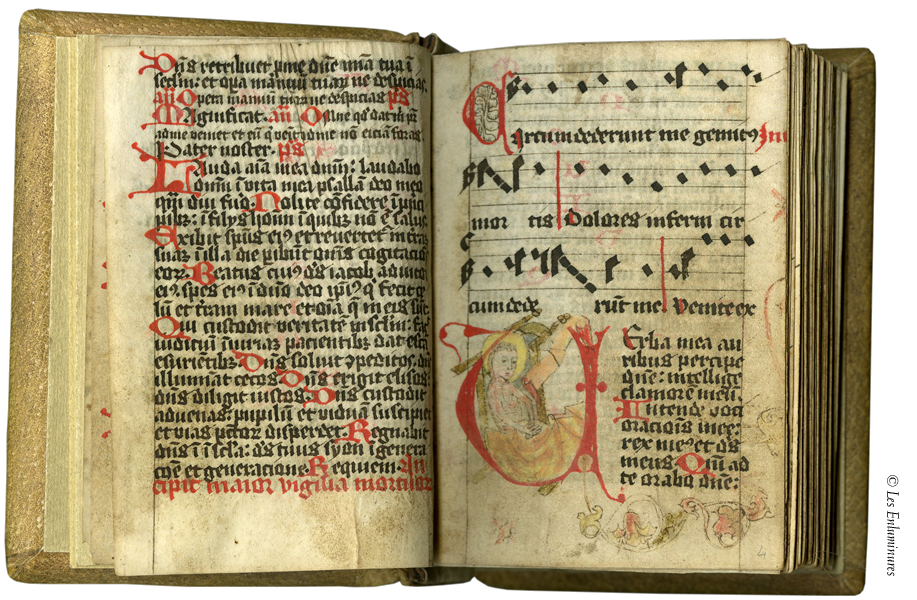 Dn̄s retribuet ꝓme dn̄e mīa tua ī
sclm̄: et oꝑa manuū tuaꝝ ne despicias
an̄ Opera manuū tuaꝝ ne despicias p̄s
Magnificat. an̄ Om̄e qd̄ dat m̄ pr̄
adme veniet et eū q̄ veīt ad me nō eiciam foras
Pater noster. p̄s
Lauda aīa mea dn̄m: laudabo
dn̄m ī vita mea psallā deo meo
qͣdiu fuō. Nolite cōfidere ī pͥncī
pibꝫ: ī filys hoīm ī quibꝫ nō ē saluꝰ
Exibit sp̄us eiꝰ et reuertet᷑ ī trā
suā: ī illa die ꝑibūt om̄s cogitacō
eoꝝ. Beatus cuiꝰ ds̄ iacob adiuto
eiꝰ spes eiꝰ ī dn̄o deo ip̄iꝰ q̄ fecit ce
lū et trām mare et oīa q̄ in eis sūt
Qui custodit veritatē ī sclm̄: fac
iuditiū iniuriā pacientibꝫ dat escā
esurientibꝫ. Dn̄s soluit ꝯpeditos. dn̄s
illuminat cecos Dn̄s erigit elisos:
dn̄s diligit iustos. Dn̄s custodit
aduenas: pupillū et viduā suscipiet
et vias pctōꝝ disperdet. Regnabit
dn̄s ī scl̄a: ds̄ tuus syon ī genera
coēꝫ et generacionē Requiem. In
cipit maior vigilia mortuoꝝ
Circumdederunt me gemitꝰ Inui
mor tis Dolores inferni cir
cum dede rūt me Venite ex
Uerba mea au
ribus percipe
dn̄e: intellige
clamorem meū.
Intende voci
oracionis mee:
rex meꝰ et ds̄
meus Qm̄ ad
te orabo dn̄e:
4
© Les Enluminures